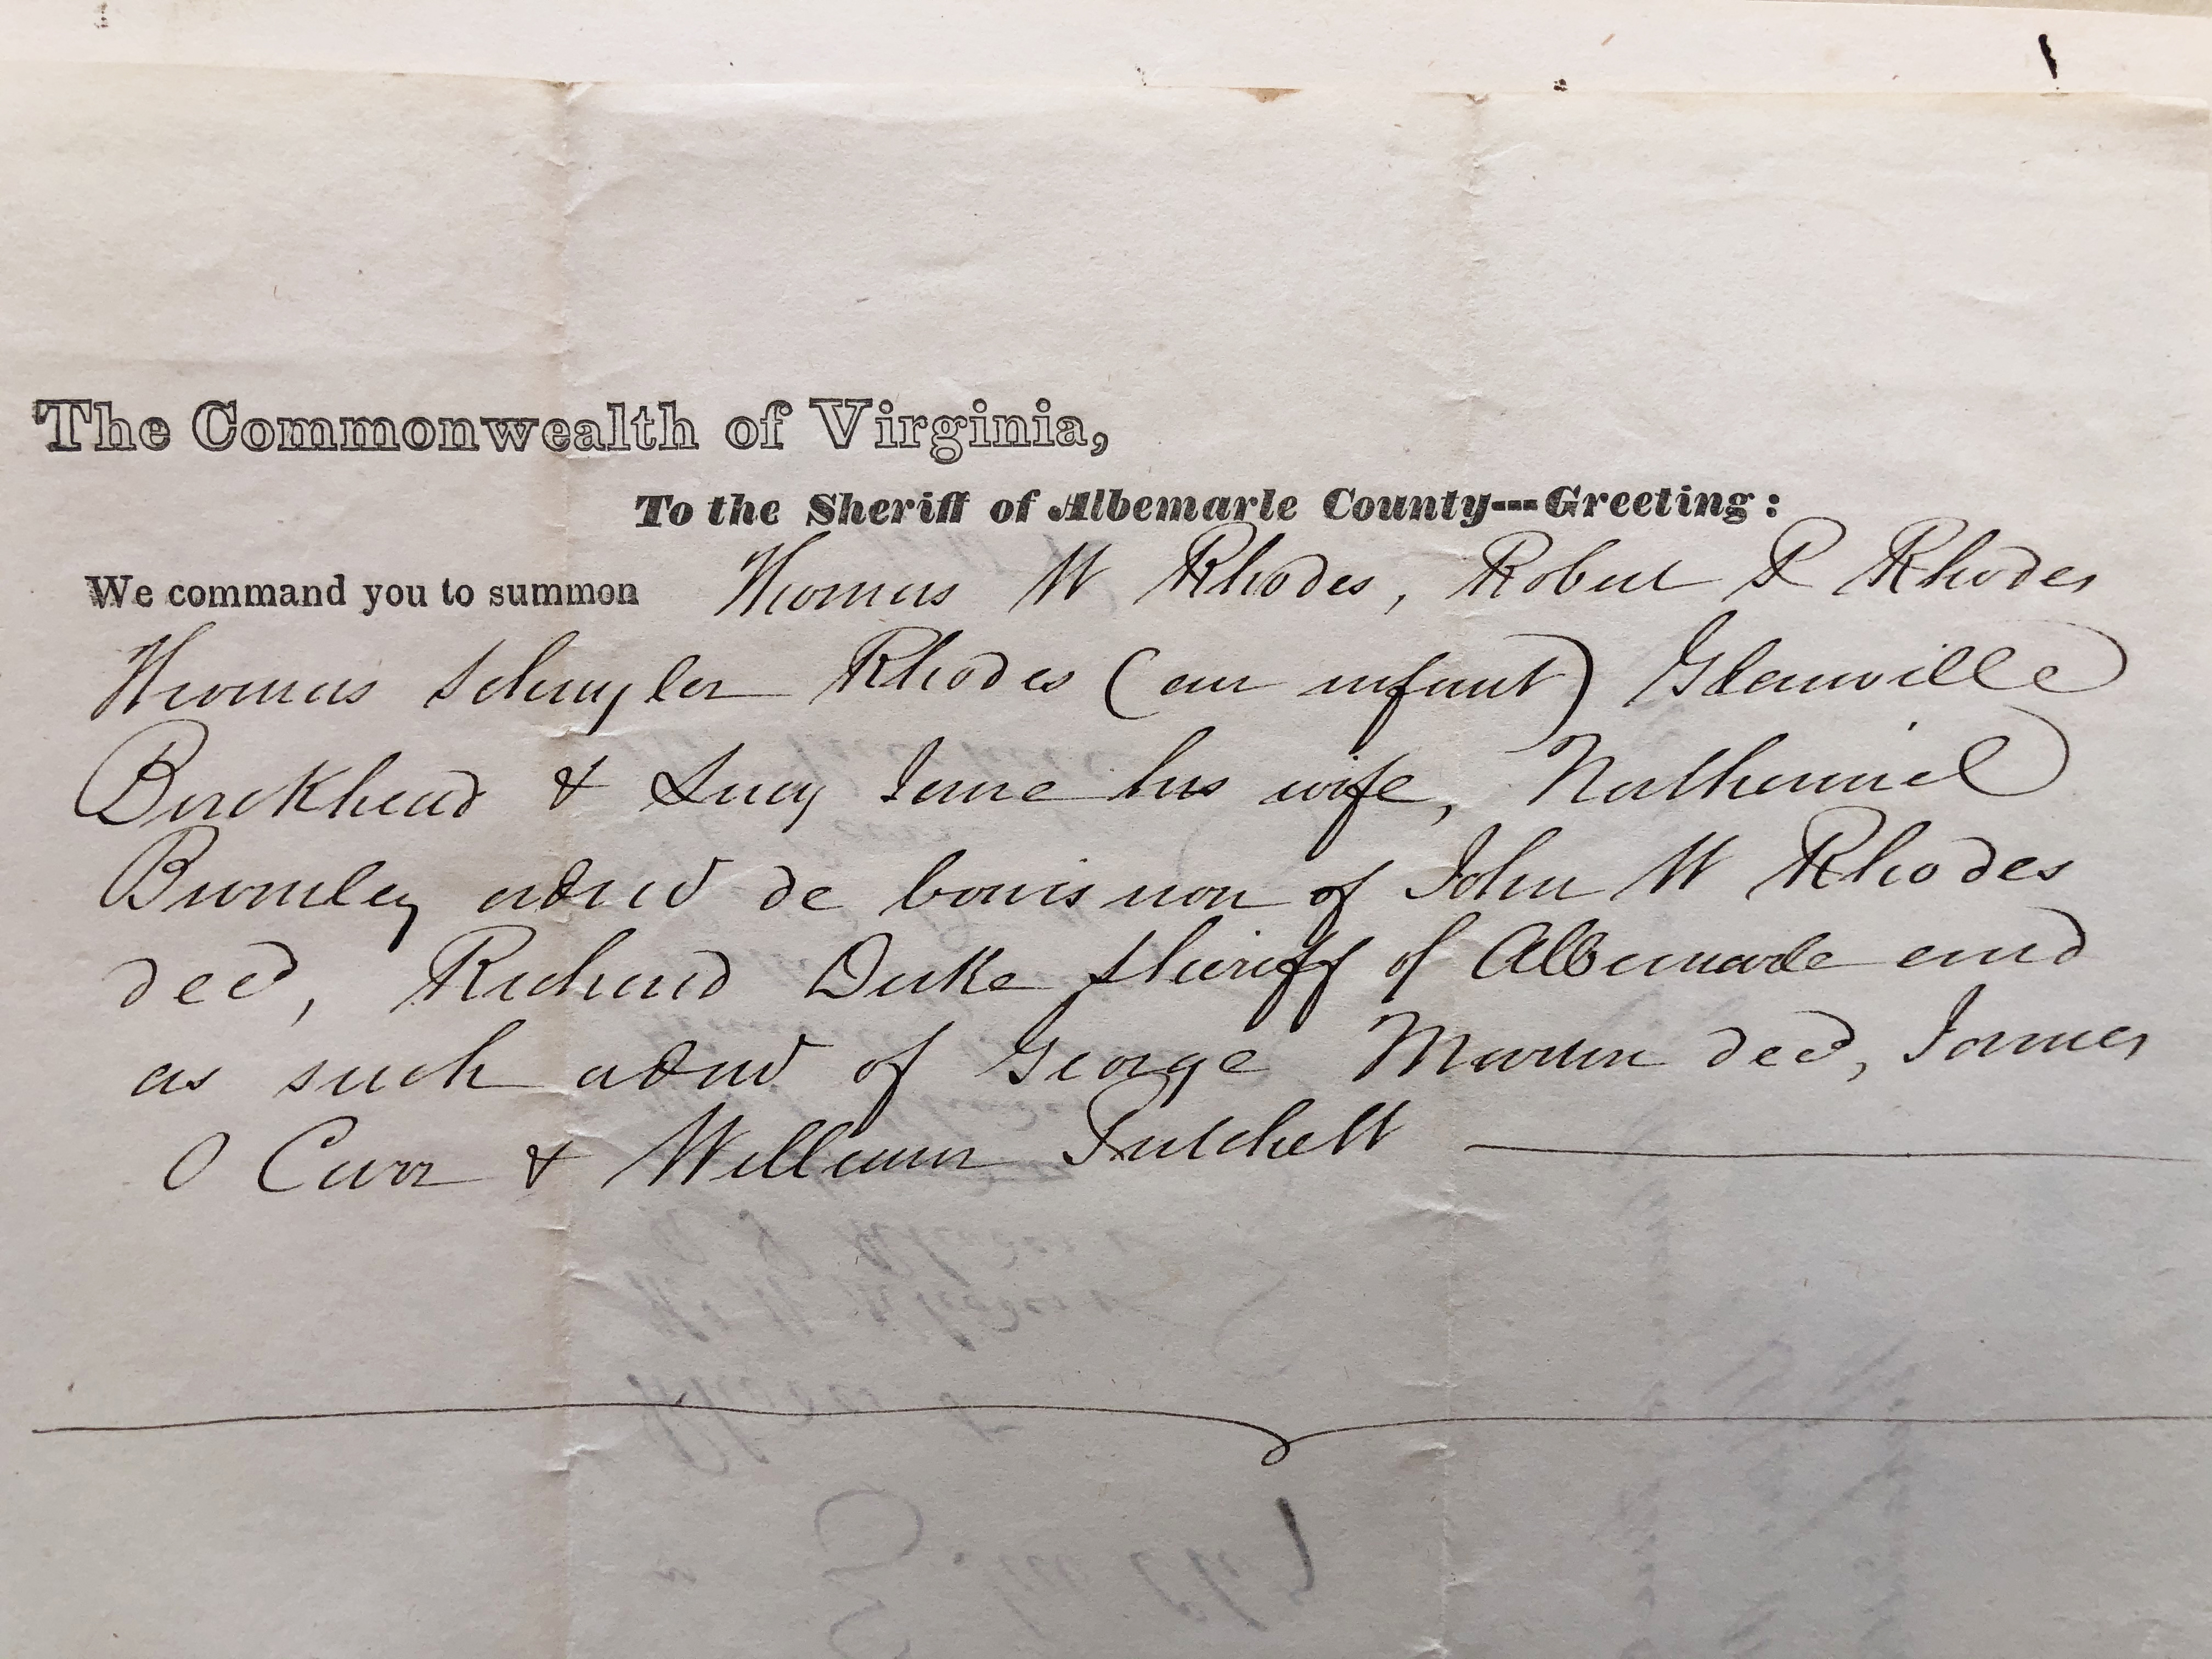 The Commonwealth of Virginia,
To the Sheriff of Albemarle County---Greeting:
We command you to summon Thomas W Rhodes, Robert R Rhodes
Thomas Schuyler Rhodes (an infant) Glenville
Burckhead & Lucy Jane his wife, Nathaniel
Burnley admr de bonis non of John W Rhodes
decd, Richard Duke sheriff of Albemarle and
as such admr of George Martin decd, James
O Carr & William Pritchett